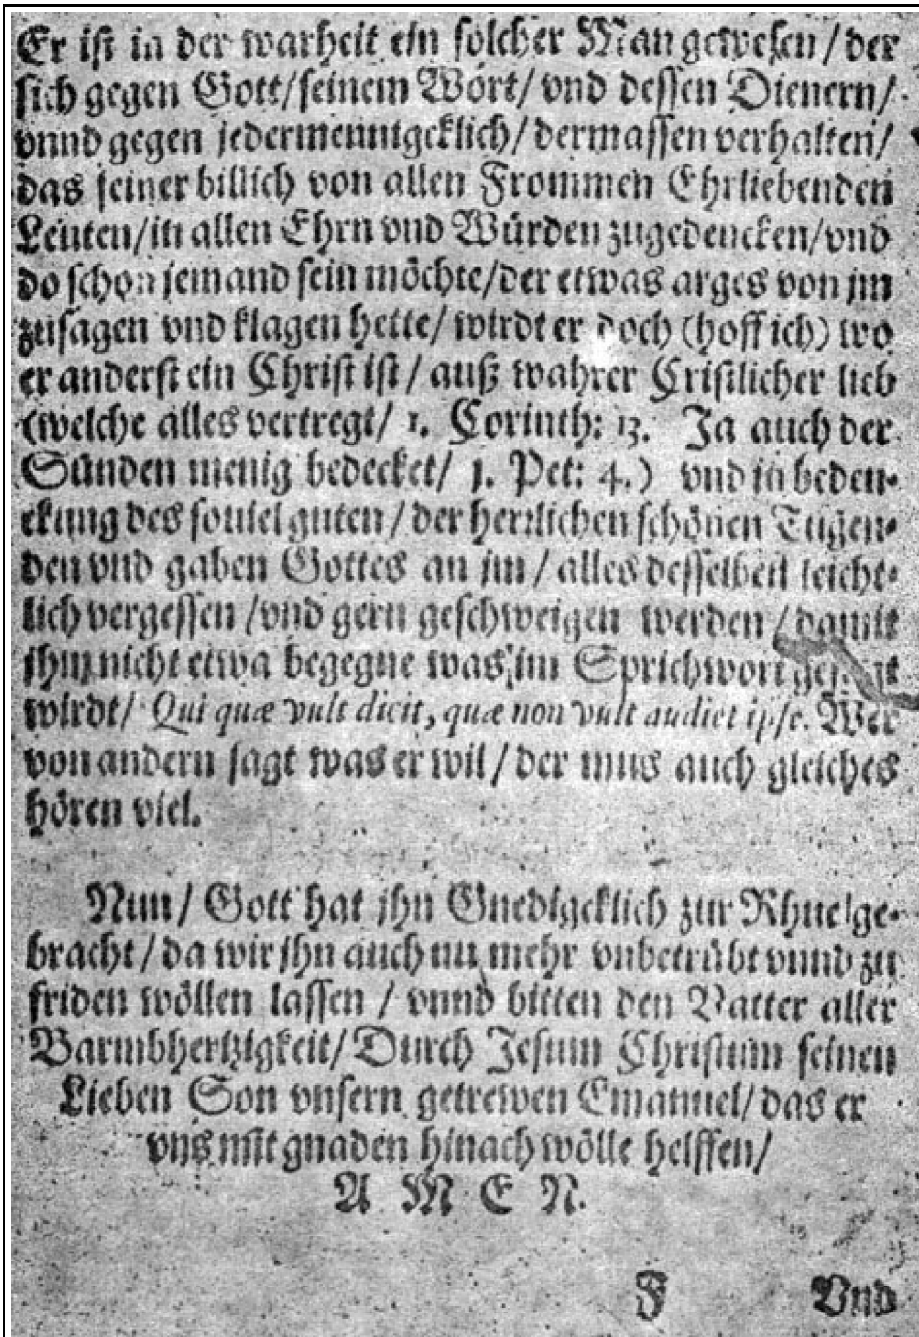 Er ist in der warheit ein solcher Man gewesen / der
sich gegen Gott / seinem Wort / vnd dessen Dienern /
vnnd gegen jedermennigcklich / dermassen verhalten /
das seiner billich von allen Frommen Ehrliebenden
Leuten / in allen Ehrn vnd Würden zugedencken / vnd
do schon jemand sein möchte / der etwas arges von jm
zusagen vnd klagen hette / wirdt er doch (hoff ich) wo
er anderst ein Christ ist / auß wahrer Cristlicher lieb
(welche alles vertregt / 1. Corinth: 13. Ja auch der
Sünden menig bedecket / 1. Pet: 4.) vnd in beden-
ckung des souiel guten / der herzlichen schönen Tugen-
den vnd gaben Gottes an jm / alles desselben leicht-
lich vergessen / vnd gern geschweigen werden / damit
jhm nicht etwa begegne was im Sprichwort gesagt
wirdt / Qui quæ vult dicit, quæ non vult audiet ipse. Wer
von andern sagt was er wil / der mus auch gleiches
hören viel.
Nun / Gott hat jhn Gnedigcklich zur Rhue ge-
bracht / da wir jhn auch nu mehr vnbetrübt vnnd zu
friden wöllen lassen / vnnd bitten den Vatter aller
Barmbhertzigkeit / Durch Jesum Christum seinen
Lieben Son vnsern getrewen Emanuel / das er
vns mit gnaden hinach wölle helffen /
A M E N.
F Vnd